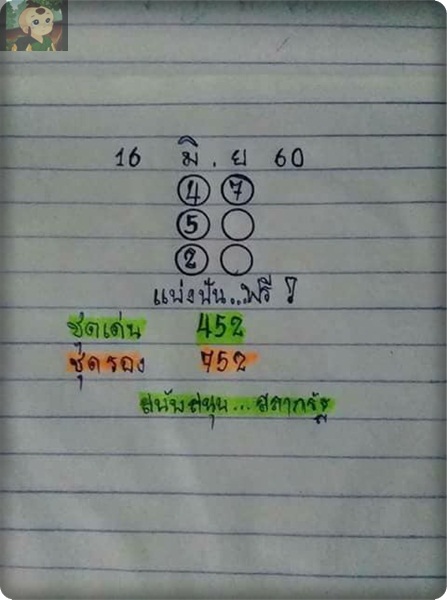 16 มิ.ย 60
4 7
5
2
แบ่งปัน...ฟรี
ชุดเด่น 452
ชุดรอง 752
สนับสนุน...สลากรัฐ